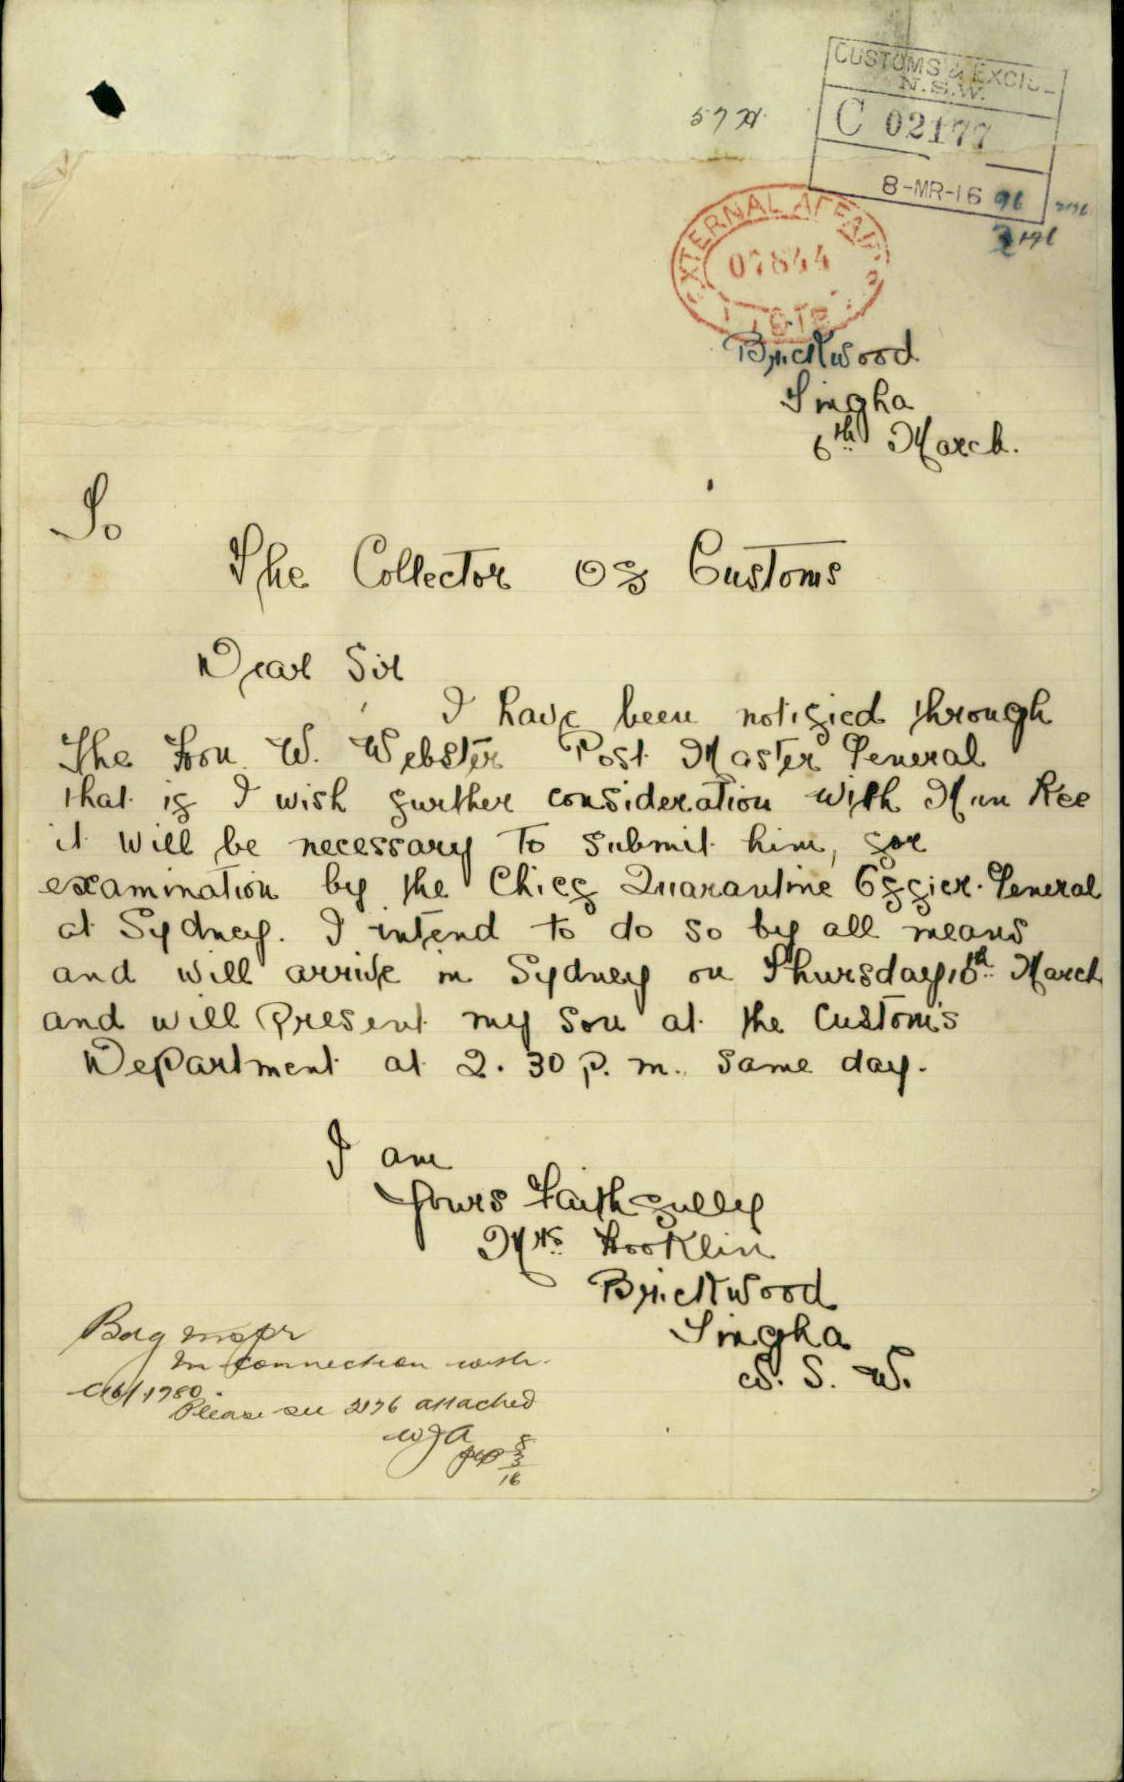 CUSTOMS & EXCISE
N.S.W.
C 02177
8-MR-16
EXTERNAL AFFAIRS
07844
Brickwood
Tingha
6th March.
To
The Collector of Customs
Dear Sir
I have been notified through
The Hon. W. Webster Post Master General
that if I wish further consideration with Mun Kee
it will be necessary to submit him, for
examination by the Chief Quarantine Offier. General
at Sydney. I intend to do so by all means
and will arrive in Sydney on Thursday 10th March
and will Present my son at the Customs
Department at 2.30 p.m. same day.
I am
Yours Faithfully
Mrs Hooklin
Brickwood
Tingha
N. S. W.
In connection with
Please see 2176 attached
WJA
8
3
16